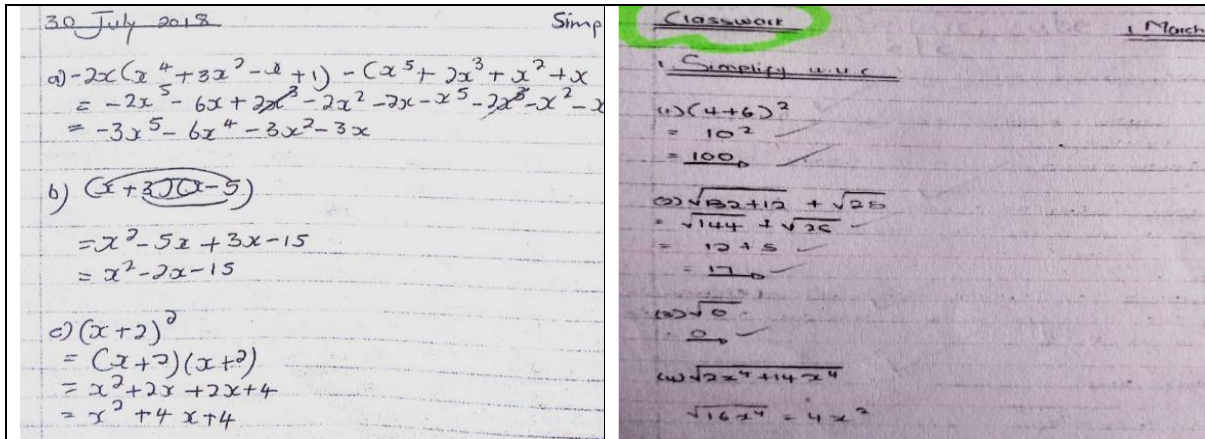 30 July 2018 Simp
a) -2x(x⁴+3x²-x+1) - (x⁵+2x³+x²+x
= -2x⁵ - 6x + 2x³ - 2x² - 2x - x⁵ - 2x³ - x² - x
= -3x⁵ - 6x⁴ - 3x² - 3x
b) (x+3)(x-5)
= x² - 5x + 3x - 15
= x² - 2x - 15
c) (x+2)²
= (x+2)(x+2)
= x² + 2x + 2x + 4
= x² + 4x + 4
Classwork 1 March
1. Simplify w.u.c
(1) (4+6)²
= 10²
= 100
(2) √132+12 + √25
= √144 + √25
= 12 + 5
= 17
(3) √0
= 0
(4) √2x⁴+14x⁴
√16x⁴ = 4x²